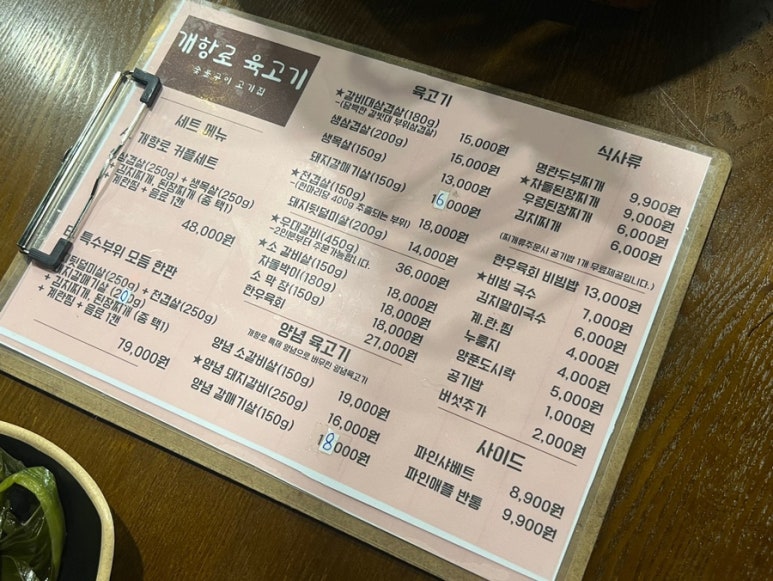 개항로 육고기
숯초구이 고기집
세트 메뉴
개항로 커플세트
삼겹살(250g) + 생목살(250g)
+ 김치찌개, 된장찌개 (중 택1)
+ 계란찜 + 음료 1캔
48,000원
특수부위 모듬 한판
뒷덜미살(250g) + 천겹살(250g)
돼지갈매기살 (200g)
+ 김치찌개, 된장찌개 (중 택1)
+ 계란찜 + 음료 1캔
79,000원
육고기
★갈비대삼겹살(180g) 15,000원
-(담백한 갈빗대 부위삼겹살)
생삼겹살(200g) 15,000원
생목살(150g) 13,000원
돼지갈매기살(150g) 16,000원
★천겹살(150g) 18,000원
-(한마리당 400g 추출되는 부위)
돼지뒷덜미살(200g) 14,000원
★우대갈비(450g) 36,000원
-2인분부터 주문가능합니다.
★소 갈비살(150g) 18,000원
차돌박이(180g) 18,000원
소 막창(150g) 18,000원
한우육회 27,000원
양념 육고기
개항로 특제 양념으로 버무린 양념육고기
양념 소갈비살(150g) 19,000원
★양념 돼지갈비(250g) 16,000원
양념 갈매기살(150g) 18,000원
식사류
명란두부찌개 9,900원
★차돌된장찌개 9,000원
우렁된장찌개 6,000원
김치찌개 6,000원
(찌개류주문시 공기밥 1개 무료제공입니다.)
한우육회 비빔밥 13,000원
★비빔 국수 7,000원
김치말이국수 6,000원
계.란.찜 4,000원
누룽지 4,000원
양푼도시락 5,000원
공기밥 1,000원
버섯추가 2,000원
사이드
파인샤베트 8,900원
파인애플 반통 9,900원